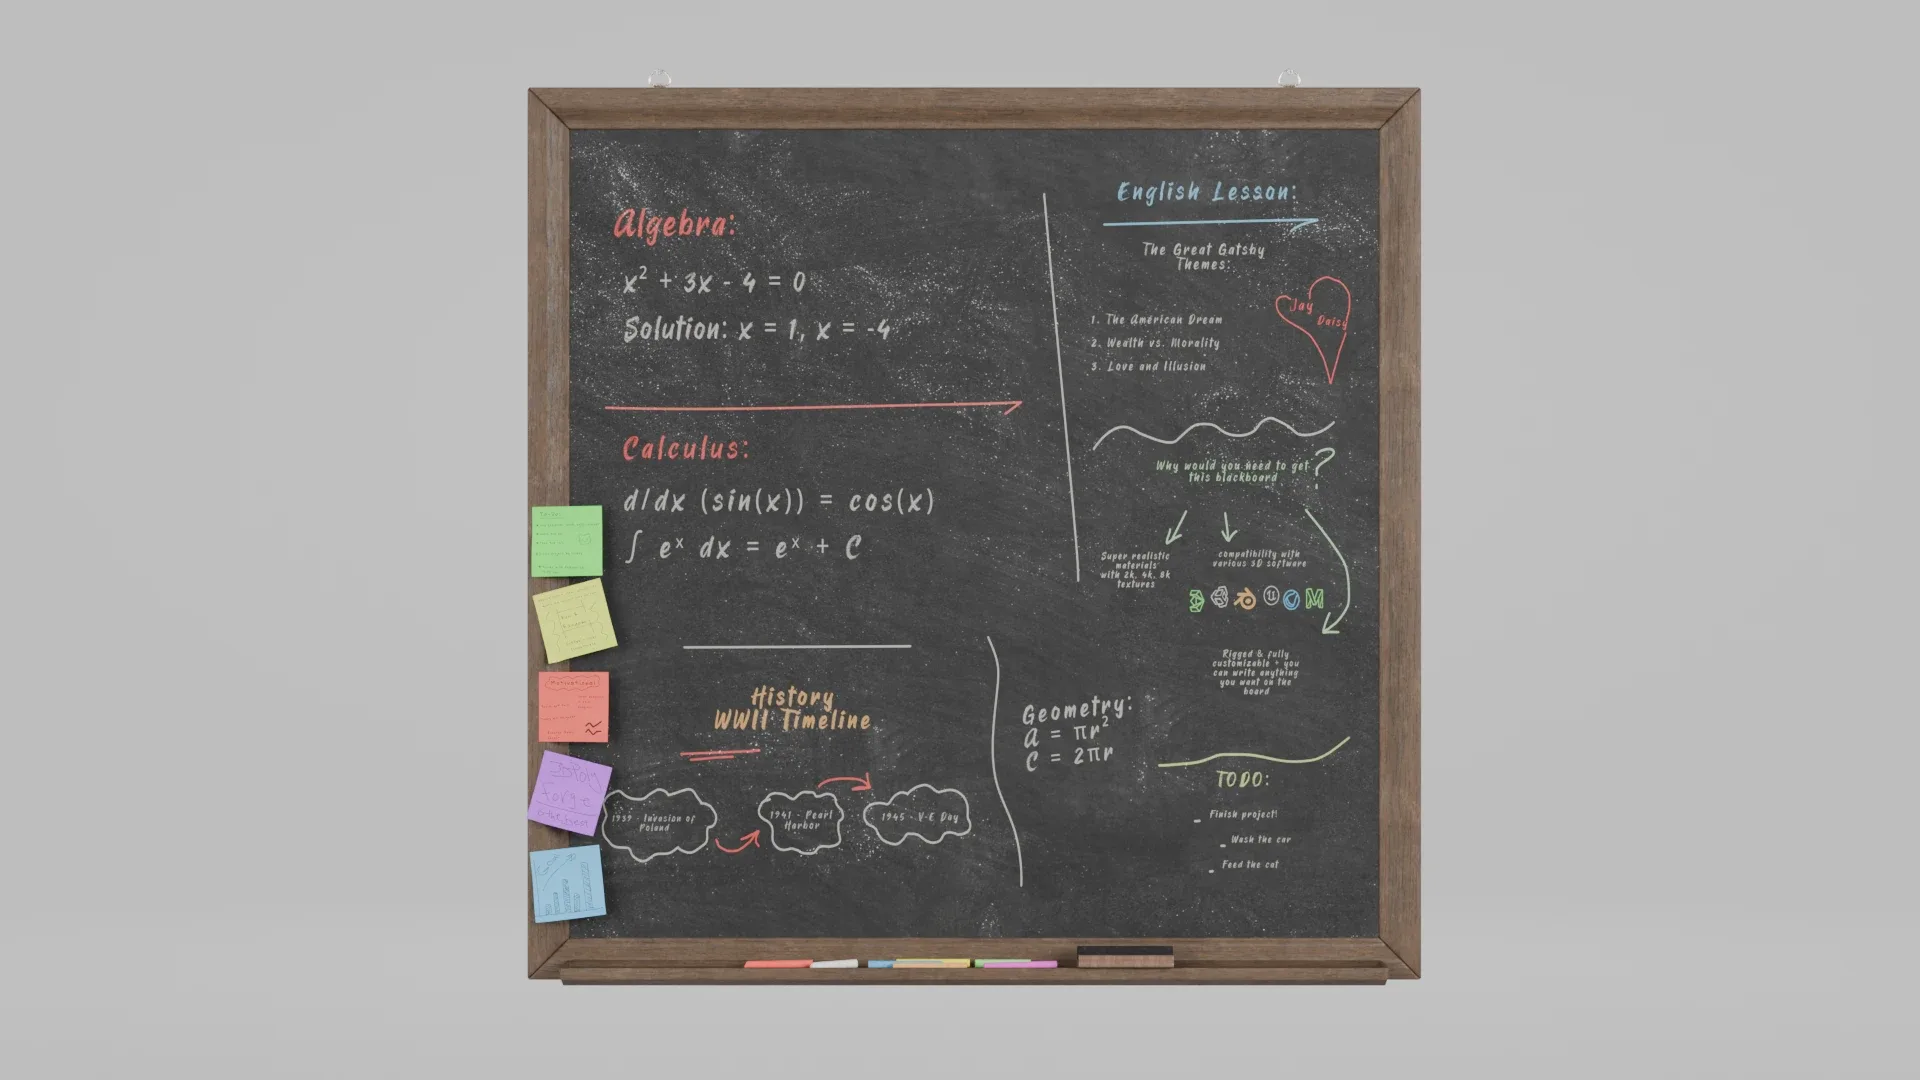 Algebra:
x² + 3x - 4 = 0
Solution: x = 1, x = -4
Calculus:
d/dx (sin(x)) = cos(x)
∫ eˣ dx = eˣ + C
History
WWII Timeline
1939 - Invasion of
Poland
1941 - Pearl
Harbor
1945 - V-E Day
English Lesson:
The Great Gatsby
Themes:
1. The American Dream
2. Wealth vs. Morality
3. Love and Illusion
Jay
Daisy
Why would you need to get
this blackboard
?
Super realistic
materials
with 2k, 4k, 8k
textures
compatibility with
various 3D software
Rigged & fully
customizable + you
can write anything
you want on the
board
Geometry:
A = πr²
C = 2πr
TODO:
- Finish project!
- Wash the car
- Feed the cat
Motivational
Forge